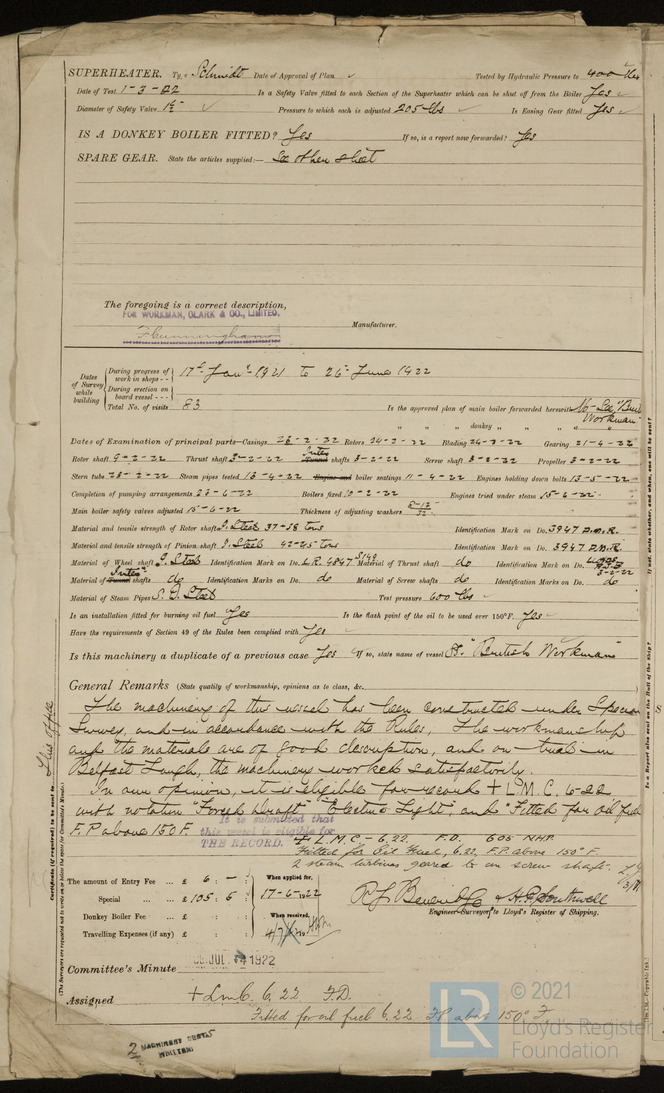 SUPERHEATER. Type Schmidt Date of Approval of Plan ✓ Tested by Hydraulic Pressure to 400 lbs
Date of Test 1-3-22 Is a Safety Valve fitted to each Section of the Superheater which can be shut off from the Boiler Yes ✓
Diameter of Safety Valve 1½" ✓ Pressure to which each is adjusted 205 lbs ✓ Is Easing Gear fitted Yes ✓
IS A DONKEY BOILER FITTED? Yes If so, is a report now forwarded? Yes
SPARE GEAR. State the articles supplied:— See other sheet
The foregoing is a correct description,
FOR WORKMAN, CLARK & CO., LIMITED.
F Cunningham
Manufacturer.
Dates of Survey while building
During progress of work in shops - - 17th Jany 1921 to 26th June 1922
During erection on board vessel - - -
Total No. of visits 83
Is the approved plan of main boiler forwarded herewith No - See "British Workman"
" " " donkey " " "
Dates of Examination of principal parts—Casings 23-2-22 Rotors 24-2-22 Blading 24-3-22 Gearing 21-4-22
Rotor shaft 9-2-22 Thrust shaft 3-2-22 Inter Tunnel shafts 3-2-22 Screw shaft 3-2-22 Propeller 3-2-22
Stern tube 23-2-22 Steam pipes tested 13-4-22 Engine and boiler seatings 11-4-22 Engines holding down bolts 13-5-22
Completion of pumping arrangements 23-6-22 Boilers fixed 10-2-22 Engines tried under steam 15-6-22
Main boiler safety valves adjusted 15-6-22 Thickness of adjusting washers
Material and tensile strength of Rotor shaft I. Steel 37-38 tons Identification Mark on Do. 3947 D.M.R.
Material and tensile strength of Pinion shaft I. Steel 42-45 tons Identification Mark on Do. 3947 D.M.R.
Material of Wheel shaft I. Steel Identification Mark on Do. L.R. 4047 5149 Material of Thrust shaft do Identification Mark on Do. 3-2-22
Material of Inter Tunnel shafts do Identification Marks on Do. do Material of Screw shafts do Identification Marks on Do. do
Material of Steam Pipes S. D. Steel Test pressure 600 lbs ✓
Is an installation fitted for burning oil fuel Yes Is the flash point of the oil to be used over 150°F. Yes ✓
Have the requirements of Section 49 of the Rules been complied with Yes ✓
Is this machinery a duplicate of a previous case Yes If so, state name of vessel "British Workman"
General Remarks (State quality of workmanship, opinions as to class, &c.
The machinery of this vessel has been constructed under Special
Survey, and in accordance with the Rules, the workmanship
and the materials are of good description, and on trial in
Belfast Lough, the machinery worked satisfactorily.
In our opinion, it is eligible for record + L.M.C. 6-22
with notation "Forced draft" "Electric Light", and "Fitted for oil fuel
F.P above 150 F.
It is submitted that
this vessel is eligible for
THE RECORD.
+ L.M.C - 6.22. F.D. 605 NHP.
Fitted for Oil Fuel, 6.22. F.P. above 150°F.
2 steam turbines geared to one screw shaft.
The amount of Entry Fee ... £ 6 : — :
Special ... £ 105 : 5 :
Donkey Boiler Fee ... £ : :
Travelling Expenses (if any) £ : :
When applied for, 17-6-1922
When received,
R. J. Beveridge & H. P. Southwell
Engineer-Surveyors to Lloyd's Register of Shipping.
Committee's Minute JUL 1922
Assigned + L.M.C. 6.22 F.D.
Fitted for oil fuel 6.22. FP above 150° F
MACHINERY CERTIF.
WRITTEN
Certificate (if required) to be sent to This office
(The Surveyors are requested not to write on or below the space for Committee's Minute.)
© 2021
Lloyd's Register
Foundation
LR